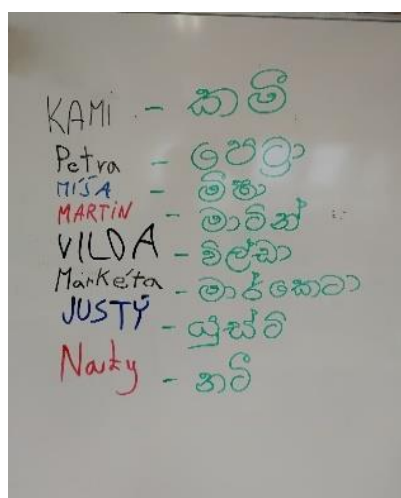 KAMI - කමී
Petra - පෙට්‍රා
MÍŠA - මිෂා
MARTIN - මාටින්
VILDA - විල්ඩා
Markéta - මාර්කෙටා
JUSTÝ - යුස්ටි
Naty - නටී